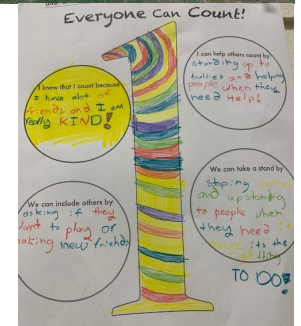 Everyone Can Count!
I know that I count because
I have alot of
friends and I am
really KIND!
I can help others count by
standing up to
bullies and helping
people when they
need Help!
We can include others by
asking if they
want to play or
making new friends
We can take a stand by
stoping
and upstanding
to people when
they need it
its the
thing
TO DO!